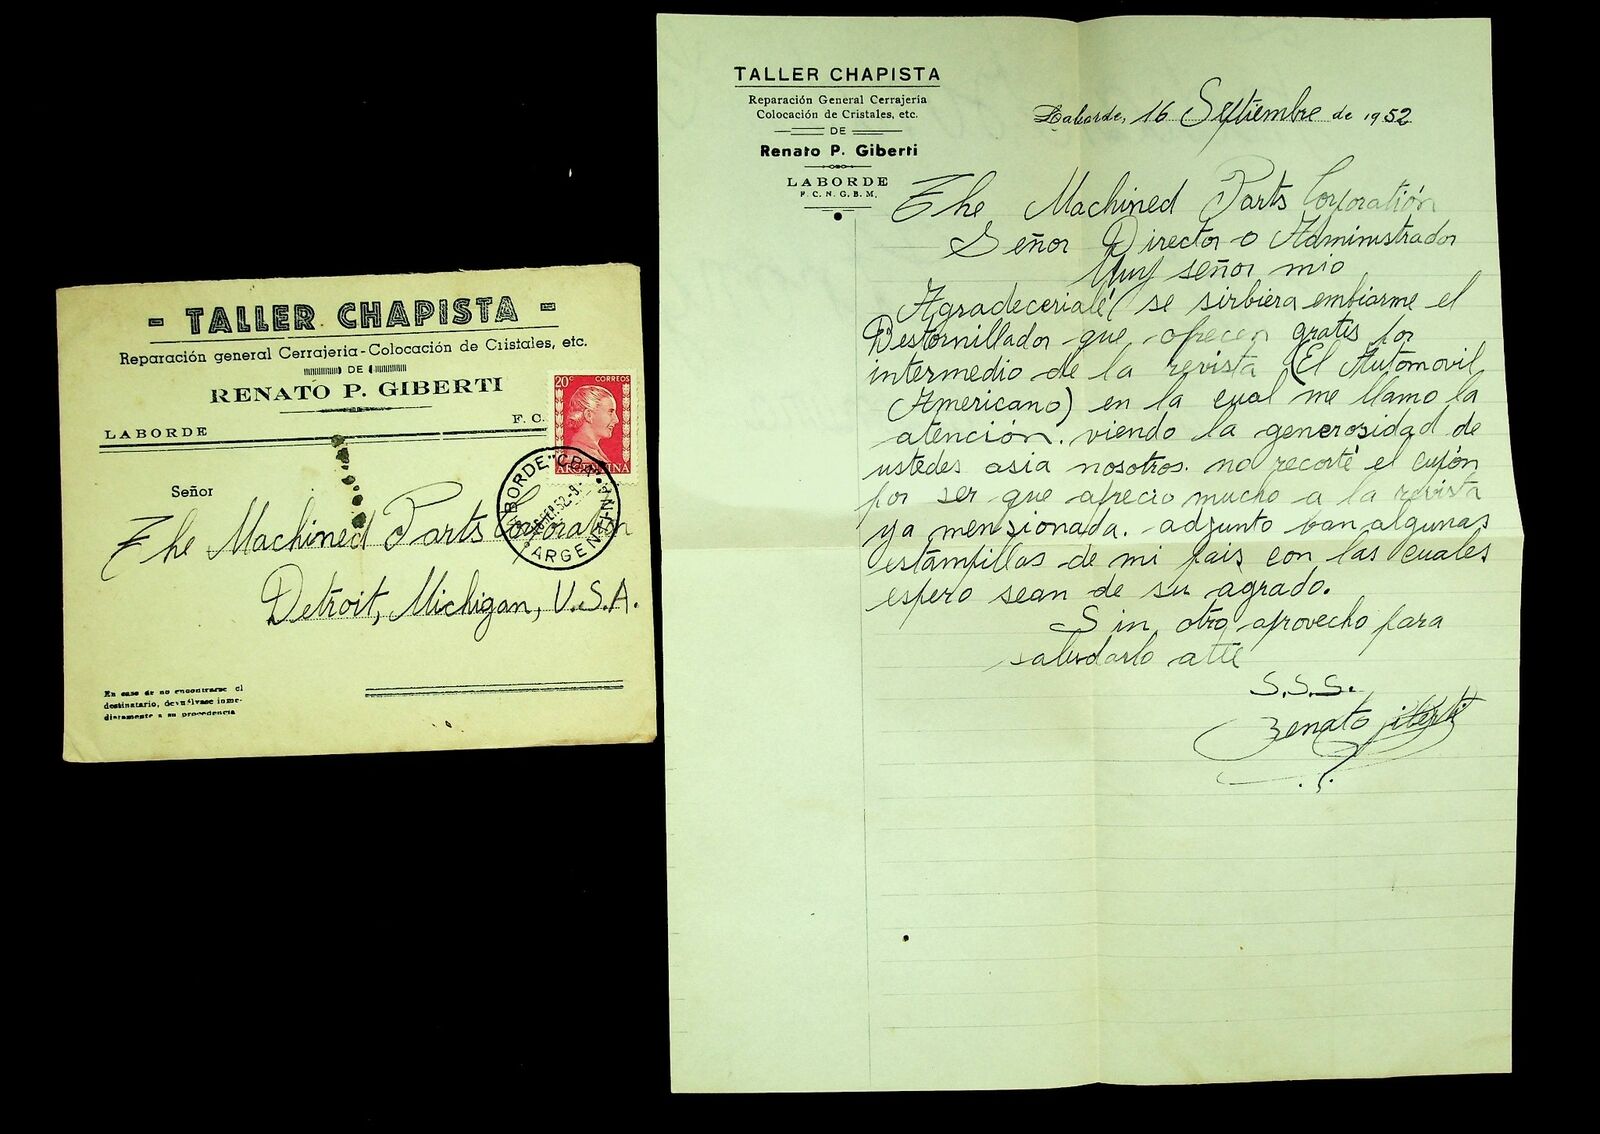 - TALLER CHAPISTA -
Reparación general Cerrajeria - Colocación de Cristales, etc.
DE
RENATO P. GIBERTI
LABORDE
F. C.
20c CORREOS
ARGENTINA
LABORDE "CBA"
ARGENTINA
Señor
The Machined Parts Corporation
Detroit, Michigan, U.S.A.
En caso de no encontrarse el
destinatario, devuélvase inme-
diatamente a su procedencia
TALLER CHAPISTA
Reparación General Cerrajería
Colocación de Cristales, etc.
DE
Renato P. Giberti
LABORDE
F. C. N. G. B. M.
Laborde, 16 Septiembre de 1952
The Machined Parts Corporatión
Señor Director o Administrador
Muy señor mio
Agradecerialé se sirbiera embiarme el
Destornillador que ofrecen gratis por
intermedio de la revista (El Automovil
Americano) en la cual me llamo la
atención. viendo la generosidad de
ustedes asia nosotros. no recorté el cupón
por ser que aprecio mucho a la revista
ya mensionada. adjunto ban algunas
estampillas de mi pais con las cuales
espero sean de su agrado.
Sin otro aprovecho para
saludarlo atte
S.S.S.
Renato Giberti